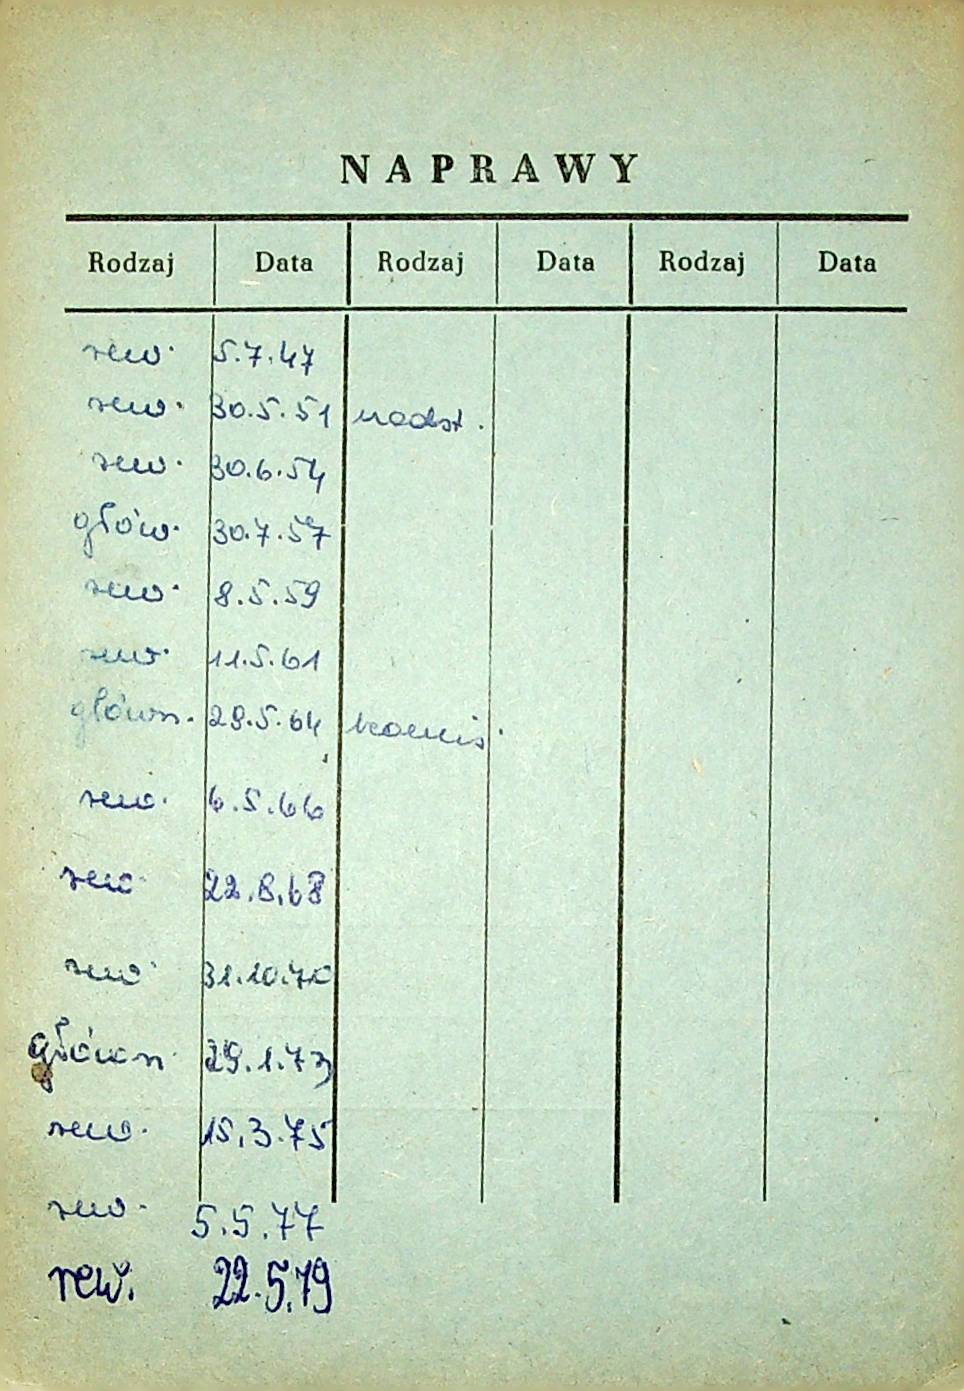 NAPRAWY
Rodzaj Data Rodzaj Data Rodzaj Data
rew. 5.7.47
rew. 30.5.51 nadst.
rew. 30.6.54
głów. 30.7.57
rew. 8.5.59
rew. 11.5.61
główn. 29.5.64 komis.
rew. 6.5.66
rew. 22.8.68
rew. 31.10.70
główn. 29.1.73
rew. 15.3.75
rew. 5.5.77
rew. 22.5.79